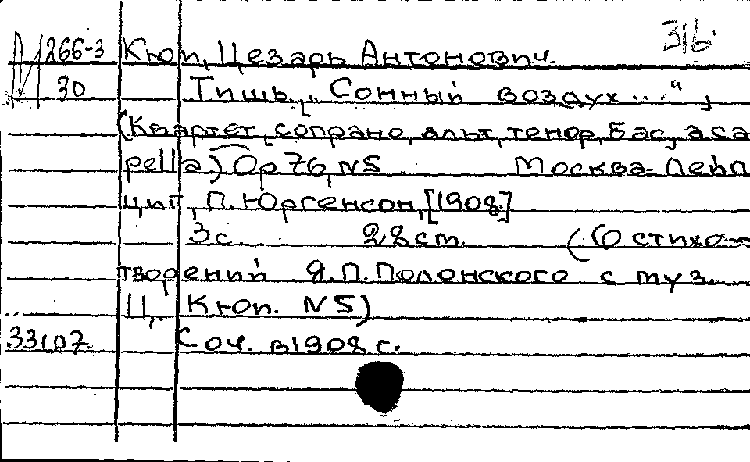 316
М 266-3 Кюи, Цезарь Антонович.
30 Тишь. „Сонный воздух...",
(Квартет, сопрано, альт, тенор, бас, a ca
pella) Op 76, N5 Москва-Лейп
циг, П. Юргенсон, [1908]
3с. 28 ст. (10 стихо-
творений Я.П. Полонского с муз.
Ц. Кюи. N5)
33107 Соч. в 1908 г.